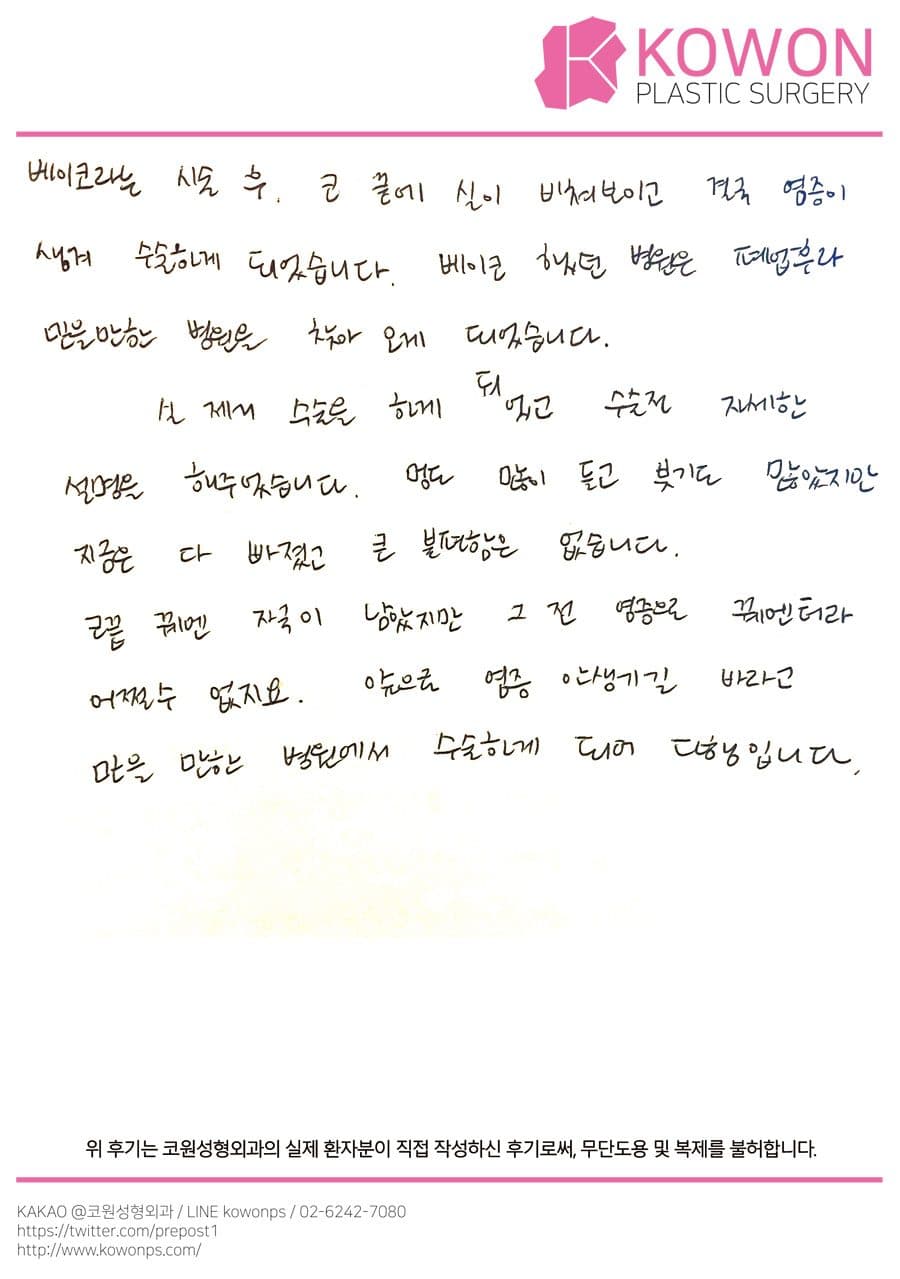 KOWON
PLASTIC SURGERY
베이코라는 시술 후, 코 끝에 실이 비쳐보이고 결국 염증이
생겨 수술하게 되었습니다. 베이코 했던 병원은 폐업후라
믿을만한 병원을 찾아 오게 되었습니다.
실 제거 수술을 하게 되었고 수술전 자세한
설명을 해주었습니다. 멍도 많이 들고 붓기도 많았지만
지금은 다 빠졌고 큰 불편함은 없습니다.
코끝 꿰멘 자국이 남았지만 그 전 염증으로 꿰멘터라
어쩔수 없지요. 앞으로 염증 안생기길 바라고
믿을 만한 병원에서 수술하게 되어 다행입니다.
위 후기는 코원성형외과의 실제 환자분이 직접 작성하신 후기로써, 무단도용 및 복제를 불허합니다.
KAKAO @코원성형외과 / LINE kowonps / 02-6242-7080
https://twitter.com/prepost1
http://www.kowonps.com/